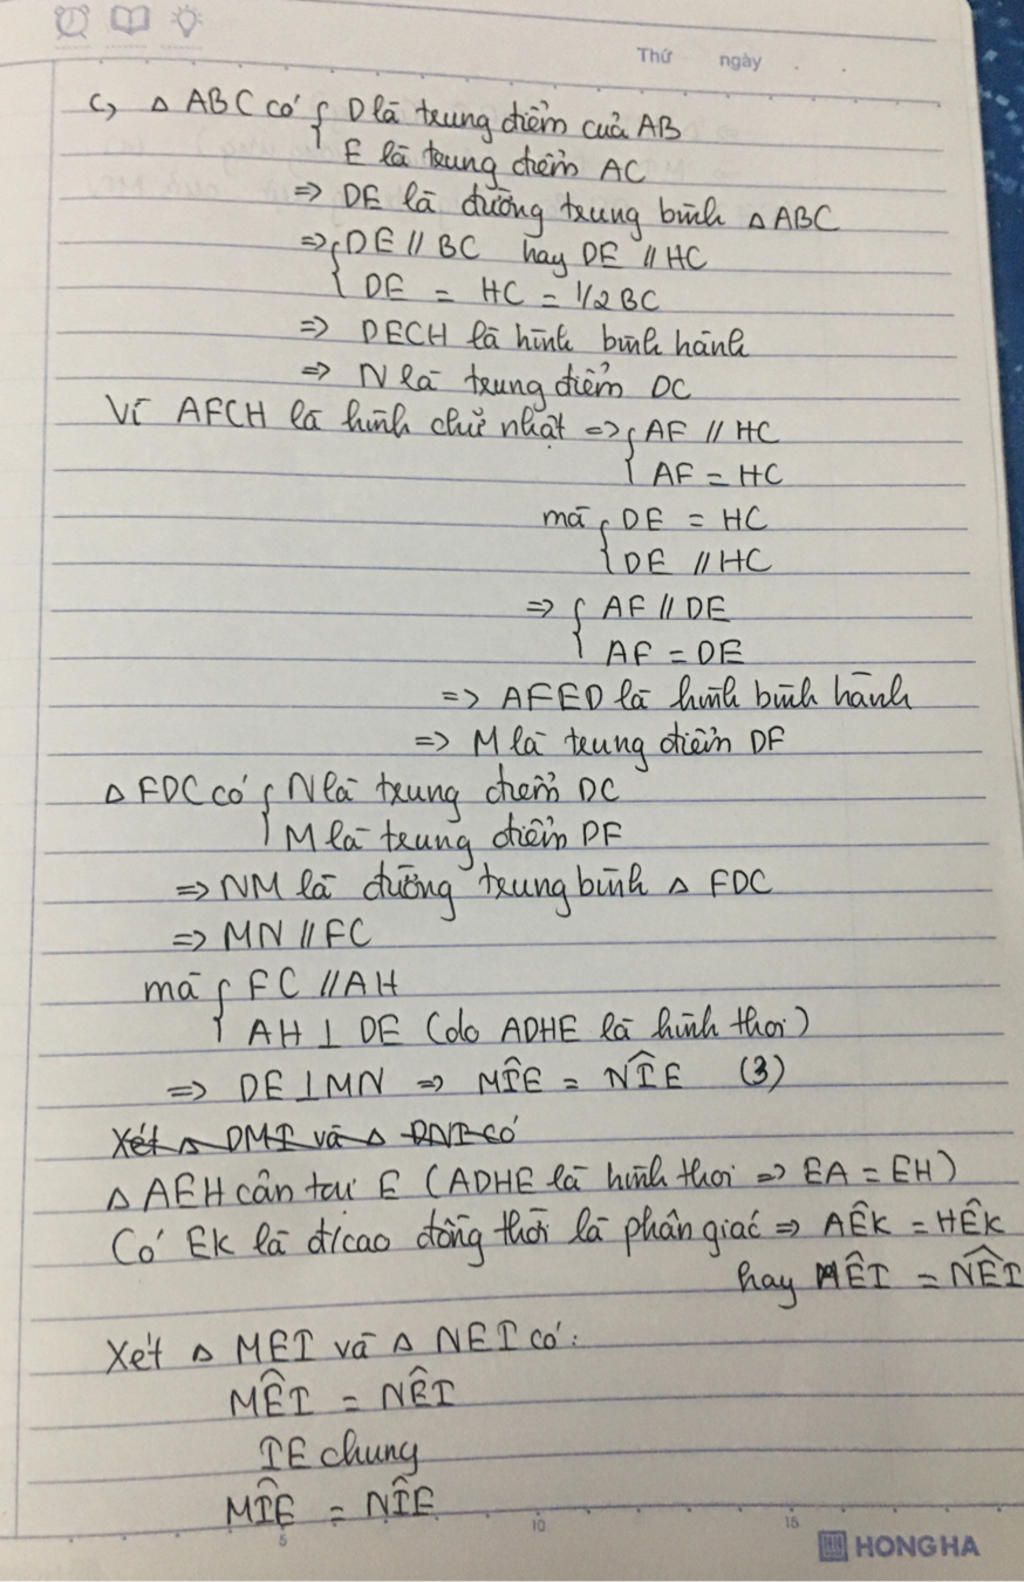 Thứ ngày
c, △ ABC có { D là trung điểm của AB
E là trung điểm AC
=> DE là đường trung bình △ ABC
=> { DE // BC hay DE // HC
DE = HC = 1/2 BC
=> DECH là hình bình hành
=> N là trung điểm DC
Vì AFCH là hình chữ nhật => { AF // HC
AF = HC
mà { DE = HC
DE // HC
=> { AF // DE
AF = DE
=> AFED là hình bình hành
=> M là trung điểm DF
△ FDC có { N là trung điểm DC
M là trung điểm DF
=> NM là đường trung bình △ FDC
=> MN // FC
mà { FC // AH
AH ⊥ DE (do ADHE là hình thoi)
=> DE ⊥ MN => MÎE = NÎE (3)
Xét △ DMI và △ DNI có
△ AEH cân tại E (ADHE là hình thoi => EA = EH)
Có EK là đ/cao đồng thời là phân giác => AÊK = HÊK
hay MÊI = NÊI
Xét △ MEI và △ NEI có:
MÊI = NÊI
IE chung
MÎE = NÎE
5 10 15
HONG HA